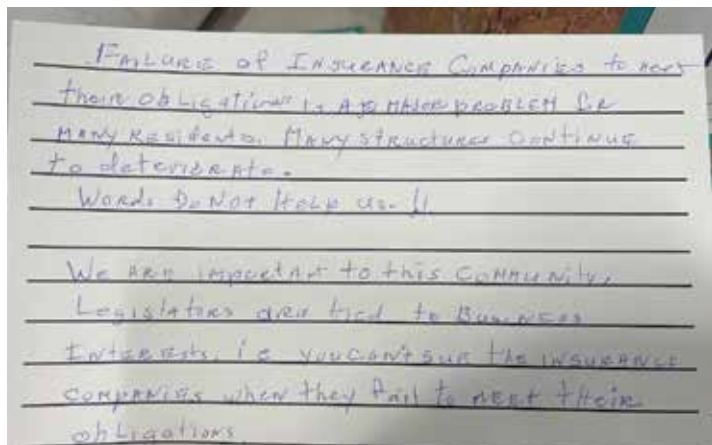 FAILURE of INSURANCE COMPANIES to meet
their obligations is A MAJOR PROBLEM for
MANY Residents. MANY structures CONTINUE
to deteriorate.
Words Do Not Help us. !!
We ARE importAnt to this COMMUNITY.
Legislators are tied to Business
Interests, ie you can't sue the insurance
companies when they fail to meet their
obligations